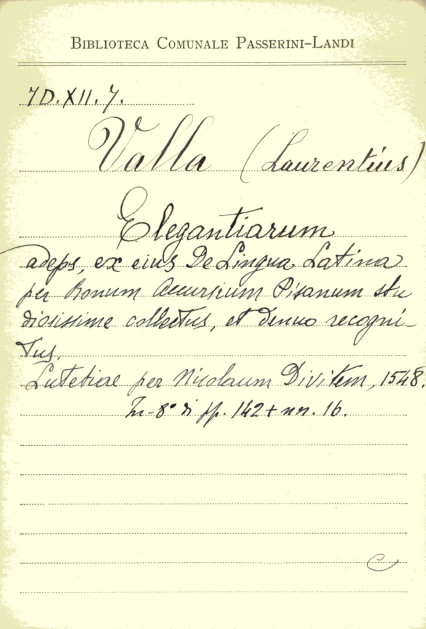 BIBLIOTECA COMUNALE PASSERINI-LANDI
7D.XII.7.
Valla (Laurentius)
Elegantiarum
adeps, ex eius De Lingua Latina
per Bonum Accursium Pisanum stu
diosissime collectus, et denuo recogni-
tus.
Lutetiae per Nicolaum Divitem, 1548.
In-8° di pp. 142 + nn. 16.